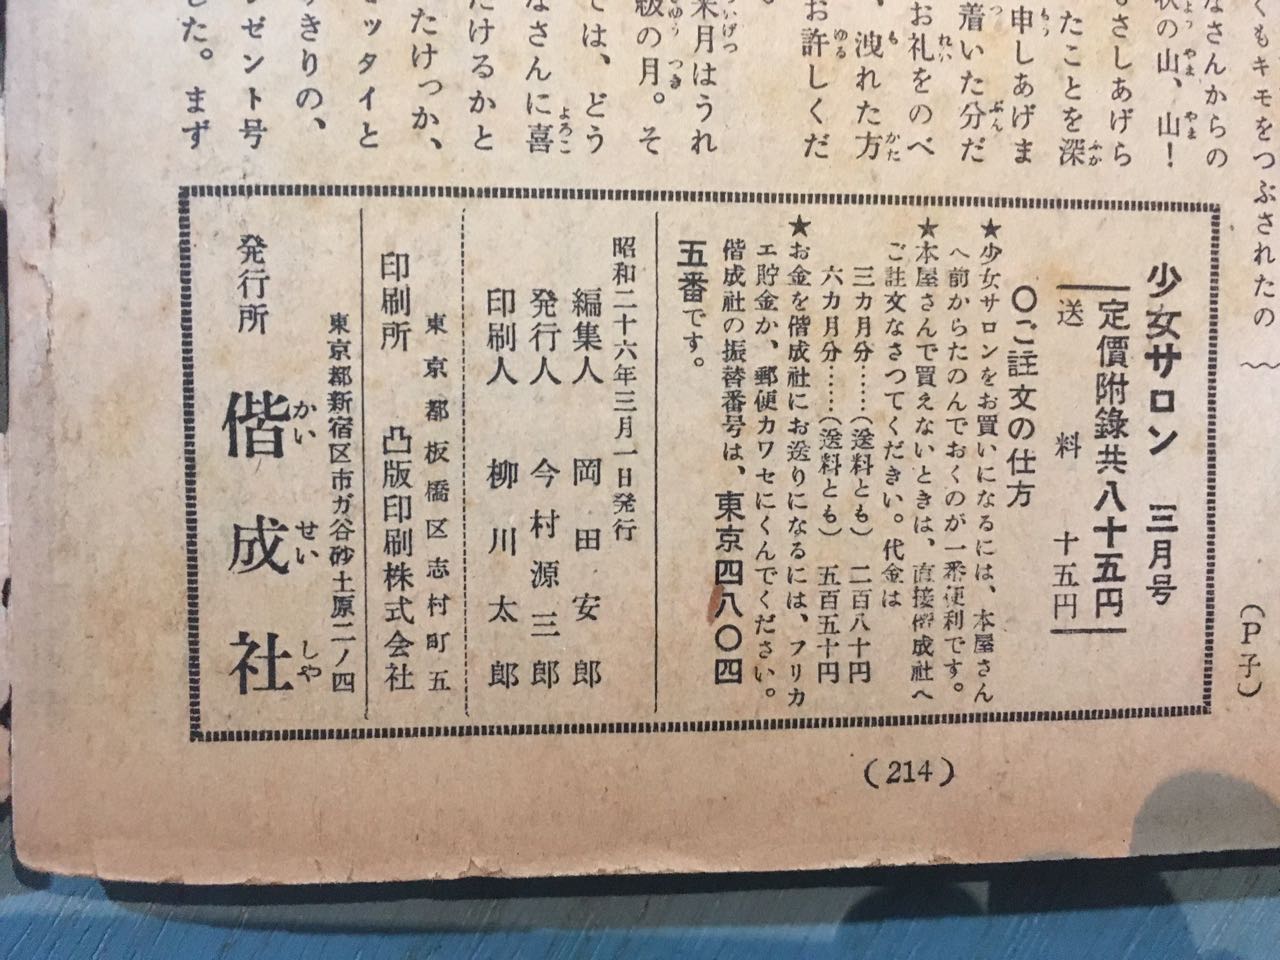 くもキモをつぶされたの
なさんからの
状の山、山!
さしあげら
たことを深
申しあげま
着いた分だ
お礼をのべ
、洩れた方
お許しくだ
。
来月はうれ
級の月。そ
では、どう
なさんに喜
たけるかと
たけっか、
ッタイと
すきりの、
ゼント号
した。まず
(P子)
少女サロン 三月号
定價附錄共八十五円
送料 十五円
○ご註文の仕方
★少女サロンをお買いになるには、本屋さん
へ前からたのんでおくのが一番便利です。
★本屋さんで買えないときは、直接偕成社へ
ご註文なさつてくだきい。代金は
三カ月分……(送料とも) 二百八十円
六カ月分……(送料とも) 五百五十円
★お金を偕成社にお送りになるには、フリカ
エ貯金か、郵便カワセにくんでください。
偕成社の振替番号は、東京四八〇四
五番です。
昭和二十六年三月一日発行
編集人 岡田安郎
発行人 今村源三郎
印刷人 柳川太郎
東京都板橋区志村町五
印刷所 凸版印刷株式会社
東京都新宿区市ガ谷砂土原二ノ四
発行所 偕成社
かいせいしや
(214)